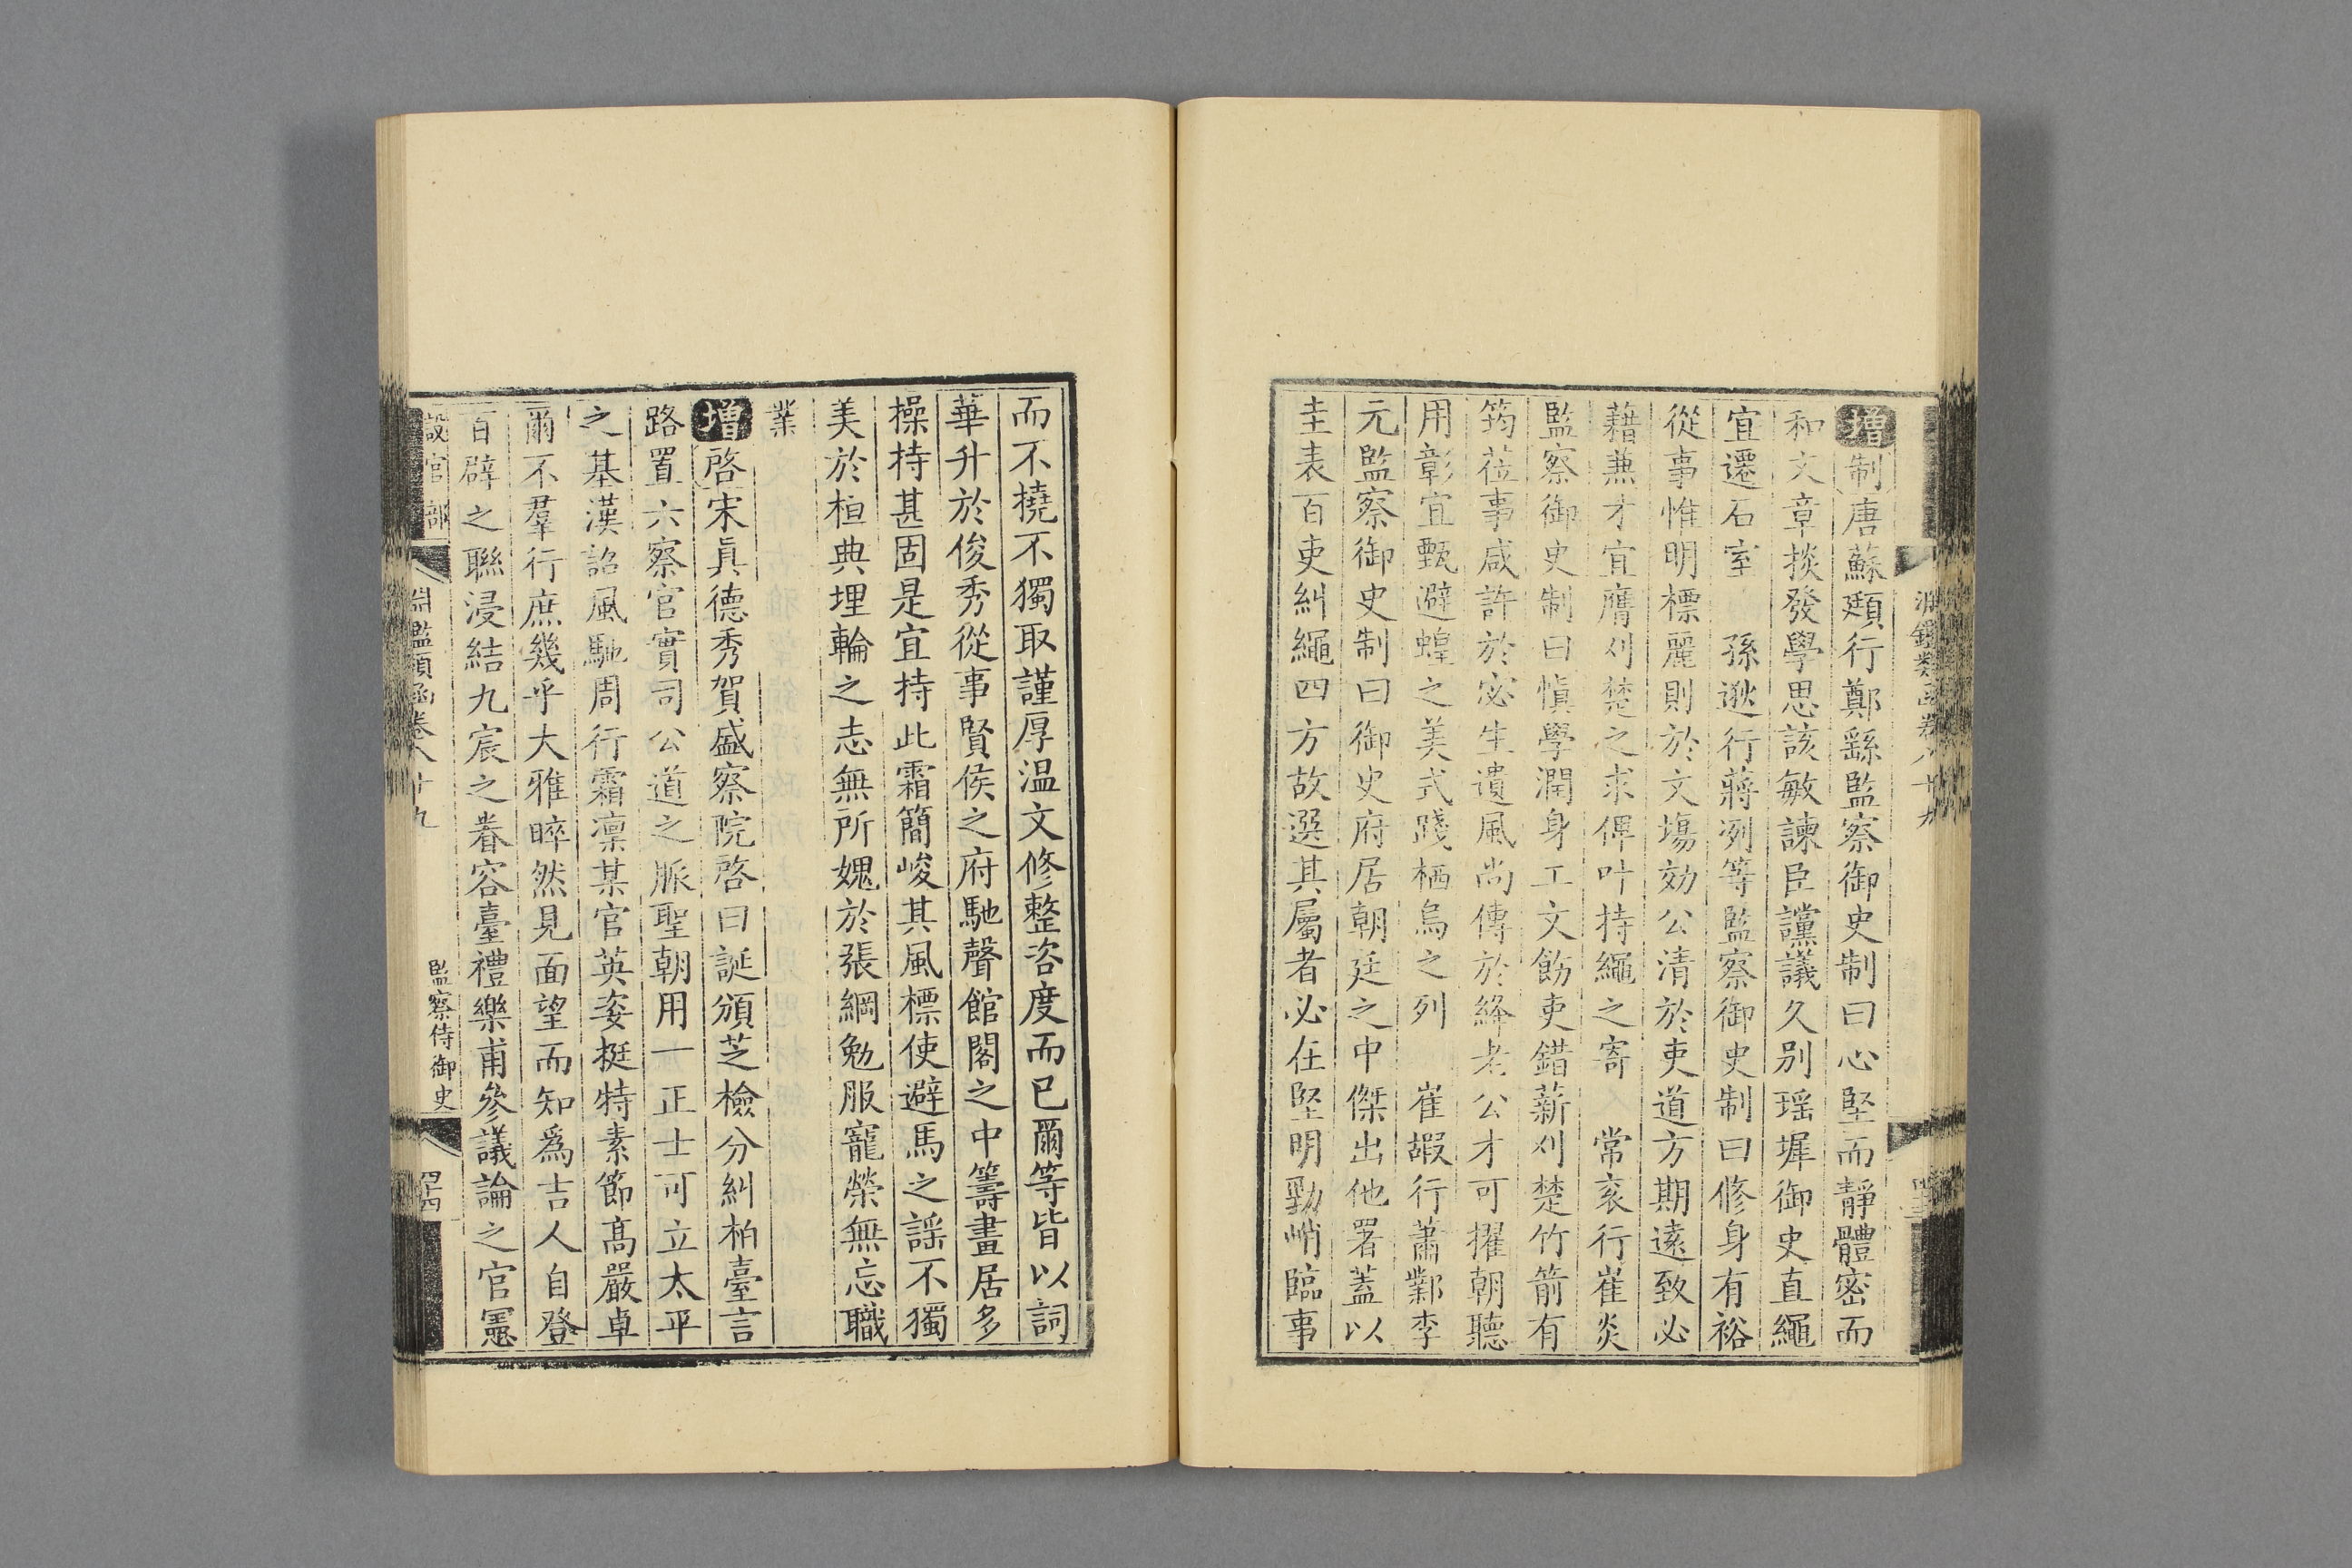 淵鑑類函卷八十九
增制唐蘇頲行鄭繇監察御史制曰心堅而靜體密而
和文章掞發學思該敏諫臣讜議久別瑶墀御史直繩
宜遷石室 孫逖行蔣洌等監察御史制曰修身有裕
從事惟明標麗則於文塲効公清於吏道方期遠致必
藉兼才宜膺刈楚之求俾叶持繩之寄 常衮行崔炎
監察御史制曰慎學潤身工文飭吏錯薪刈楚竹箭有
筠莅事咸許於宓生遺風尚傳於絳老公才可擢朝聽
用彰宜甄避蝗之美式踐栖烏之列 崔嘏行蕭鄴李
元監察御史制曰御史府居朝廷之中傑出他署蓋以
圭表百吏糾繩四方故選其屬者必在堅明勁峭臨事
而不撓不獨取謹厚温文修整咨度而已爾等皆以詞
華升於俊秀從事賢侯之府馳聲館閣之中籌畫居多
操持甚固是宜持此霜簡峻其風標使避馬之謡不獨
美於桓典埋輪之志無所媿於張綱勉服寵榮無忘職
業
增啓宋眞德秀賀盛察院啓曰誕頒芝檢分糾柏臺言
路置六察官實司公道之脈聖朝用一正士可立太平
之基漢詔風馳周行霜凜某官英姿挺特素節高嚴卓
爾不羣行庶幾乎大雅睟然見面望而知爲吉人自登
百辟之聯浸結九宸之眷容臺禮樂甫參議論之官憲
設官部 淵鑑類函卷八十九 監察侍御史 四十四